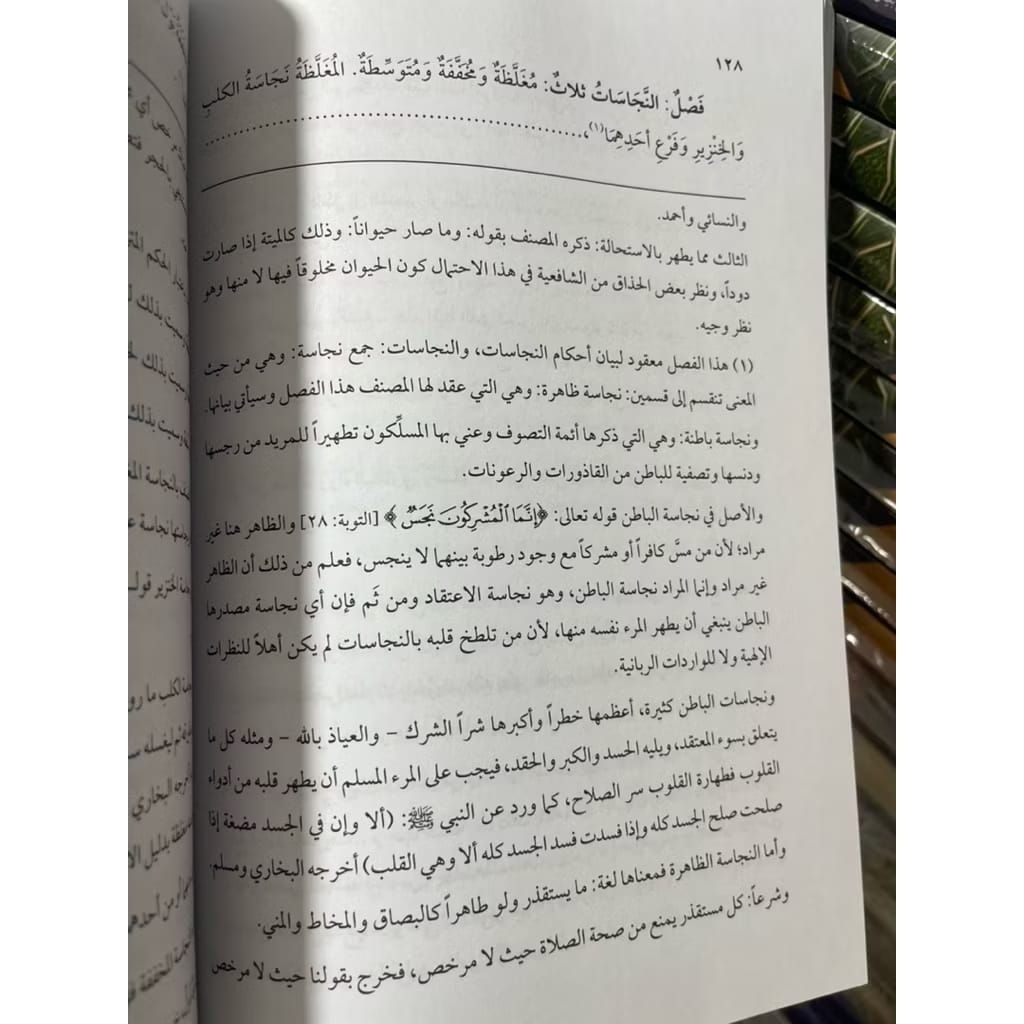 ١٢٨
فَصْلٌ: النَّجَاسَاتُ ثلاثٌ: مُغَلَّظَةٌ وَمُخَفَّفَةٌ وَمُتَوَسِّطَةٌ. المُغَلَّظَةُ نَجَاسَةُ الكلبِ
وَالخِنْزِيرِ وَفَرْعِ أحَدِهِمَا(١)،......................................................
والنسائي وأحمد.
الثالث مما يطهر بالاستحالة: ذكره المصنف بقوله: وما صار حيواناً: وذلك كالميتة إذا صارت
دوداً، ونظر بعض الحذاق من الشافعية في هذا الاحتمال كون الحيوان مخلوقاً فيها لا منها وهو
نظر وجيه.
(١) هذا الفصل معقود لبيان أحكام النجاسات، والنجاسات: جمع نجاسة: وهي من حيث
المعنى تنقسم إلى قسمين: نجاسة ظاهرة: وهي التي عقد لها المصنف هذا الفصل وسيأتي بيانها.
ونجاسة باطنة: وهي التي ذكرها أئمة التصوف وعني بها المسلِّكون تطهيراً للمريد من رجسها
ودنسها وتصفية للباطن من القاذورات والرعونات.
والأصل في نجاسة الباطن قوله تعالى: ﴿إِنَّمَا ٱلْمُشْرِكُونَ نَجَسٌ﴾ [التوبة: ٢٨] والظاهر هنا غير
مراد؛ لأن من مسَّ كافراً أو مشركاً مع وجود رطوبة بينهما لا ينجس، فعلم من ذلك أن الظاهر
غير مراد وإنما المراد نجاسة الباطن، وهو نجاسة الاعتقاد ومن ثَم فإن أي نجاسة مصدرها
الباطن ينبغي أن يطهر المرء نفسه منها، لأن من تلطخ قلبه بالنجاسات لم يكن أهلاً للنظرات
الإلهية ولا للواردات الربانية.
ونجاسات الباطن كثيرة، أعظمها خطراً وأكبرها شراً الشرك - والعياذ بالله - ومثله كل ما
يتعلق بسوء المعتقد، ويليه الحسد والكبر والحقد، فيجب على المرء المسلم أن يطهر قلبه من أدواء
القلوب فطهارة القلوب سر الصلاح، كما ورد عن النبي ﷺ: (ألا وإن في الجسد مضغة إذا
صلحت صلح الجسد كله وإذا فسدت فسد الجسد كله ألا وهي القلب) أخرجه البخاري ومسلم.
وأما النجاسة الظاهرة فمعناها لغة: ما يستقذر ولو طاهراً كالبصاق والمخاط والمني.
وشرعاً: كل مستقذر يمنع من صحة الصلاة حيث لا مرخص، فخرج بقولنا حيث لا مرخص